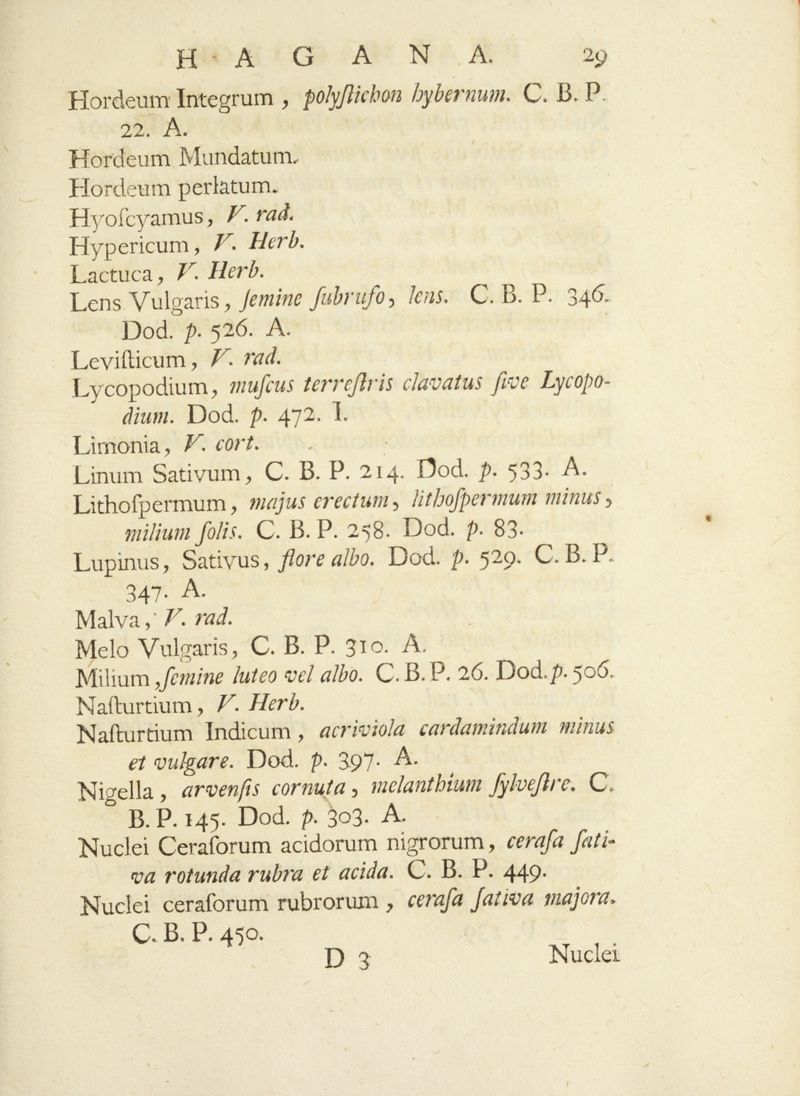 H A G A N A. 29
Hordeum Integrum, polyſtichon hybernum. C. B. P.
22. A.
Hordeum Mundatum.
Hordeum perlatum.
Hyoſcyamus, V. rad.
Hypericum, V. Herb.
Lactuca, V. Herb.
Lens Vulgaris, ſemine ſubrufo, lens. C. B. P. 346.
Dod. p. 526. A.
Leviſticum, V. rad.
Lycopodium, muſcus terreſtris clavatus ſive Lycopo-
dium. Dod. p. 472. I.
Limonia, V. cort.
Linum Sativum, C. B. P. 214. Dod. p. 533. A.
Lithoſpermum, majus erectum, lithoſpermum minus,
milium ſolis. C. B. P. 258. Dod. p. 83.
Lupinus, Sativus, flore albo. Dod. p. 529. C. B. P.
347. A.
Malva, V. rad.
Melo Vulgaris, C. B. P. 310. A.
Milium, ſemine luteo vel albo. C. B. P. 26. Dod. p. 506.
Naſturtium, V. Herb.
Naſturtium Indicum, acriviola cardamindum minus
et vulgare. Dod. p. 397. A.
Nigella, arvenſis cornuta, melanthium ſylveſtre. C.
B. P. 145. Dod. p. 303. A.
Nuclei Ceraſorum acidorum nigrorum, ceraſa ſati-
va rotunda rubra et acida. C. B. P. 449.
Nuclei ceraſorum rubrorum, ceraſa ſativa majora.
C. B. P. 450.
D 3 Nuclei